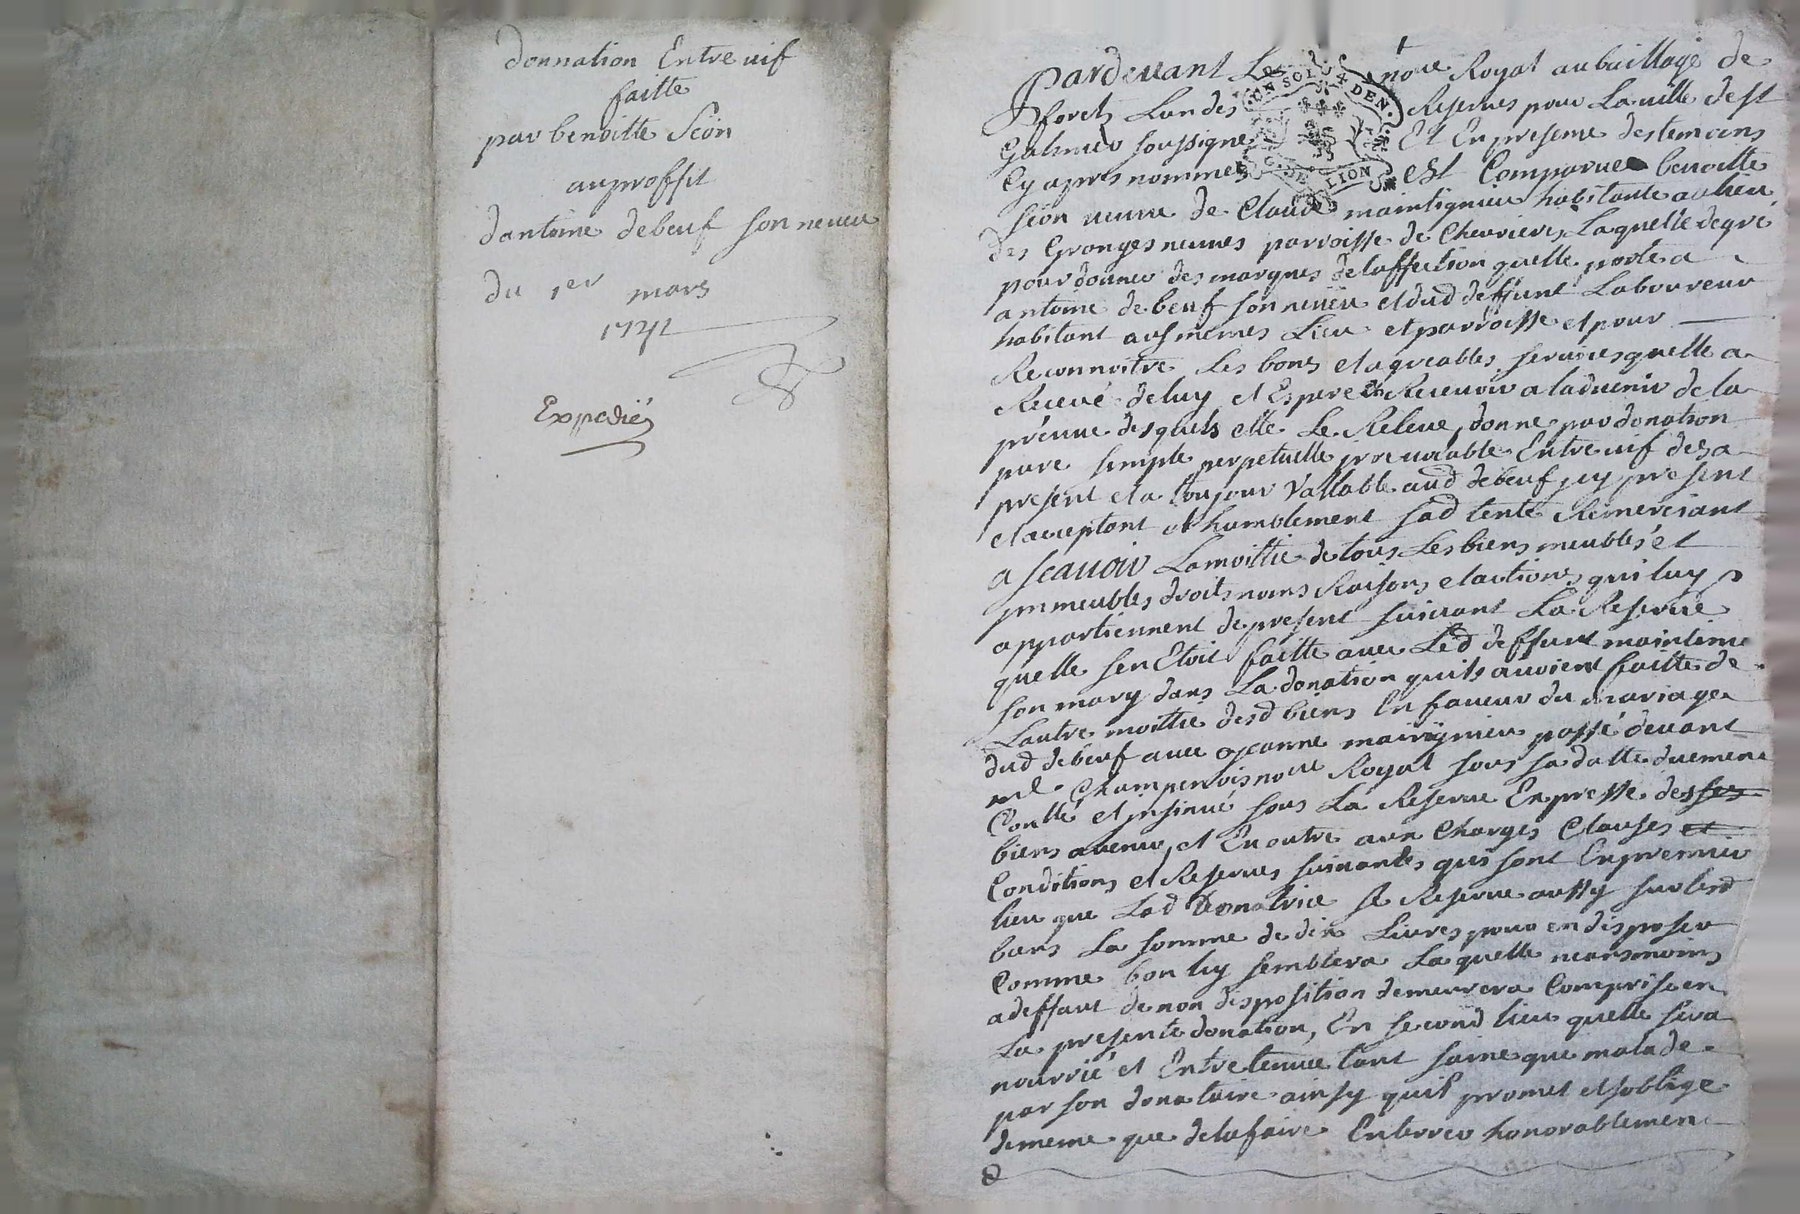 donnation Entre uif
faitte
par benoitte Seon
au proffit
dantoine debeuf son neveu
du 1er mars
1741
Expedié
Pardevant Le nore Royal au bailliage de
forets Lun des Reserves pour La ville de st
Galmier soussigné Et En presence des temoins
Cy apres nommes est Comparue benoitte
Seon veuve de Claude maintignieu habitante au lieu
des Granges neuves parroisse de Chevrieres, Laquelle de gré
pour donner des marques de laffection quelle porte a
antoine debeuf son neveu et dud deffunt Laboureur
habitant aux memes Lieu et parroisse et pour
Reconnoitre Les bons et agreables services quelle a
Receue de luy et Espere En Recevoir a ladvenir de la
preuve desquels elle Le Releve, donne par donation
pure simple perpetuelle jrrevocable Entre uif des a
present et a toujour Vallable aud debeuf jcy present
et acceptant et humblement sad tente Remerciant
a scavoir La moittie de tous Les biens meubles et
jmmeubles droits noms Raisons et actions qui luy
appartiennent de present suivant La Reserve
quelle sen Etoit faitte avec Led deffunt
son mary dans La donation quils avoient faitte de
Lautre moittie desd biens En faveur du mariage
dud debeuf avec jeanne passé devant
me Champenois nore Royal sous sa datte duement
Conllé et jnsinué sous La Reserve Expresse des ses
biens avenir, et En outre aux Charges Clauses et
Conditions et Reserves suivantes qui sont En premier
lieu que Lad Donatrice se Reserve aussy sur lesd
biens La somme de dix Livres pour en disposer
Comme bon luy semblera La quelle neansmoins
a deffaut de non disposition demeurera Comprise en
La presente donation, En second lieu quelle sera
nourrie et Entretenue tant saine que malade
par son donataire ainsy quil promet et soblige
de meme que de la faire Enterrer honorablement
UN SOL 4 DEN.
G. DE LION